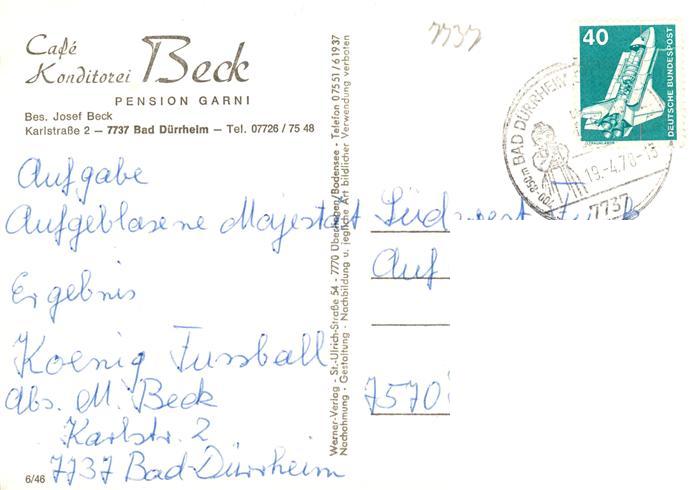 Café
Konditorei Beck
PENSION GARNI
Bes. Josef Beck
Karlstraße 2 – 7737 Bad Dürrheim – Tel. 07726 / 75 48
7737
40
DEUTSCHE BUNDESPOST
BAD DÜRRHEIM
700-850m
19.-4.78-15
7737
Aufgabe
Aufgeblasene Majestät
Ergebnis
Koenig Fussball
Abs. M. Beck
Karlstr. 2
7737 Bad-Dürrheim
6/46
Werner-Verlag - St.-Ulrich-Straße 54 - 7770 Überlingen/Bodensee - Telefon 07551/61937
Nachahmung - Gestaltung - Nachbildung u. jegliche Art bildlicher Verwendung verboten
Südwestfunk
Auf
7570